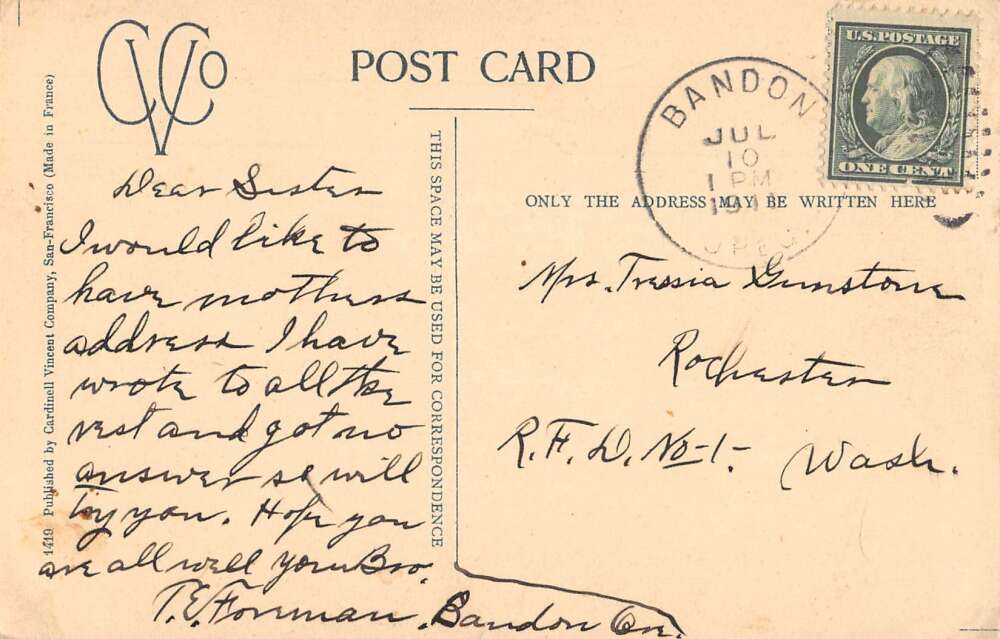 CVCo
POST CARD
1419 Published by Cardinell Vincent Company, San-Francisco (Made in France)
THIS SPACE MAY BE USED FOR CORRESPONDENCE
Dear Sister
I would like to
have mothers
address I have
wrote to all the
rest and got no
answer so will
try you. Hope you
are all well your Bro.
T.E. Foreman. Bandon Ore.
BANDON
JUL
10
1 PM
OREG.
U.S. POSTAGE
ONE CENT
ONLY THE ADDRESS MAY BE WRITTEN HERE
Mrs. Tressia Gunstone
Rochester
R.F.D. No-1- Wash.